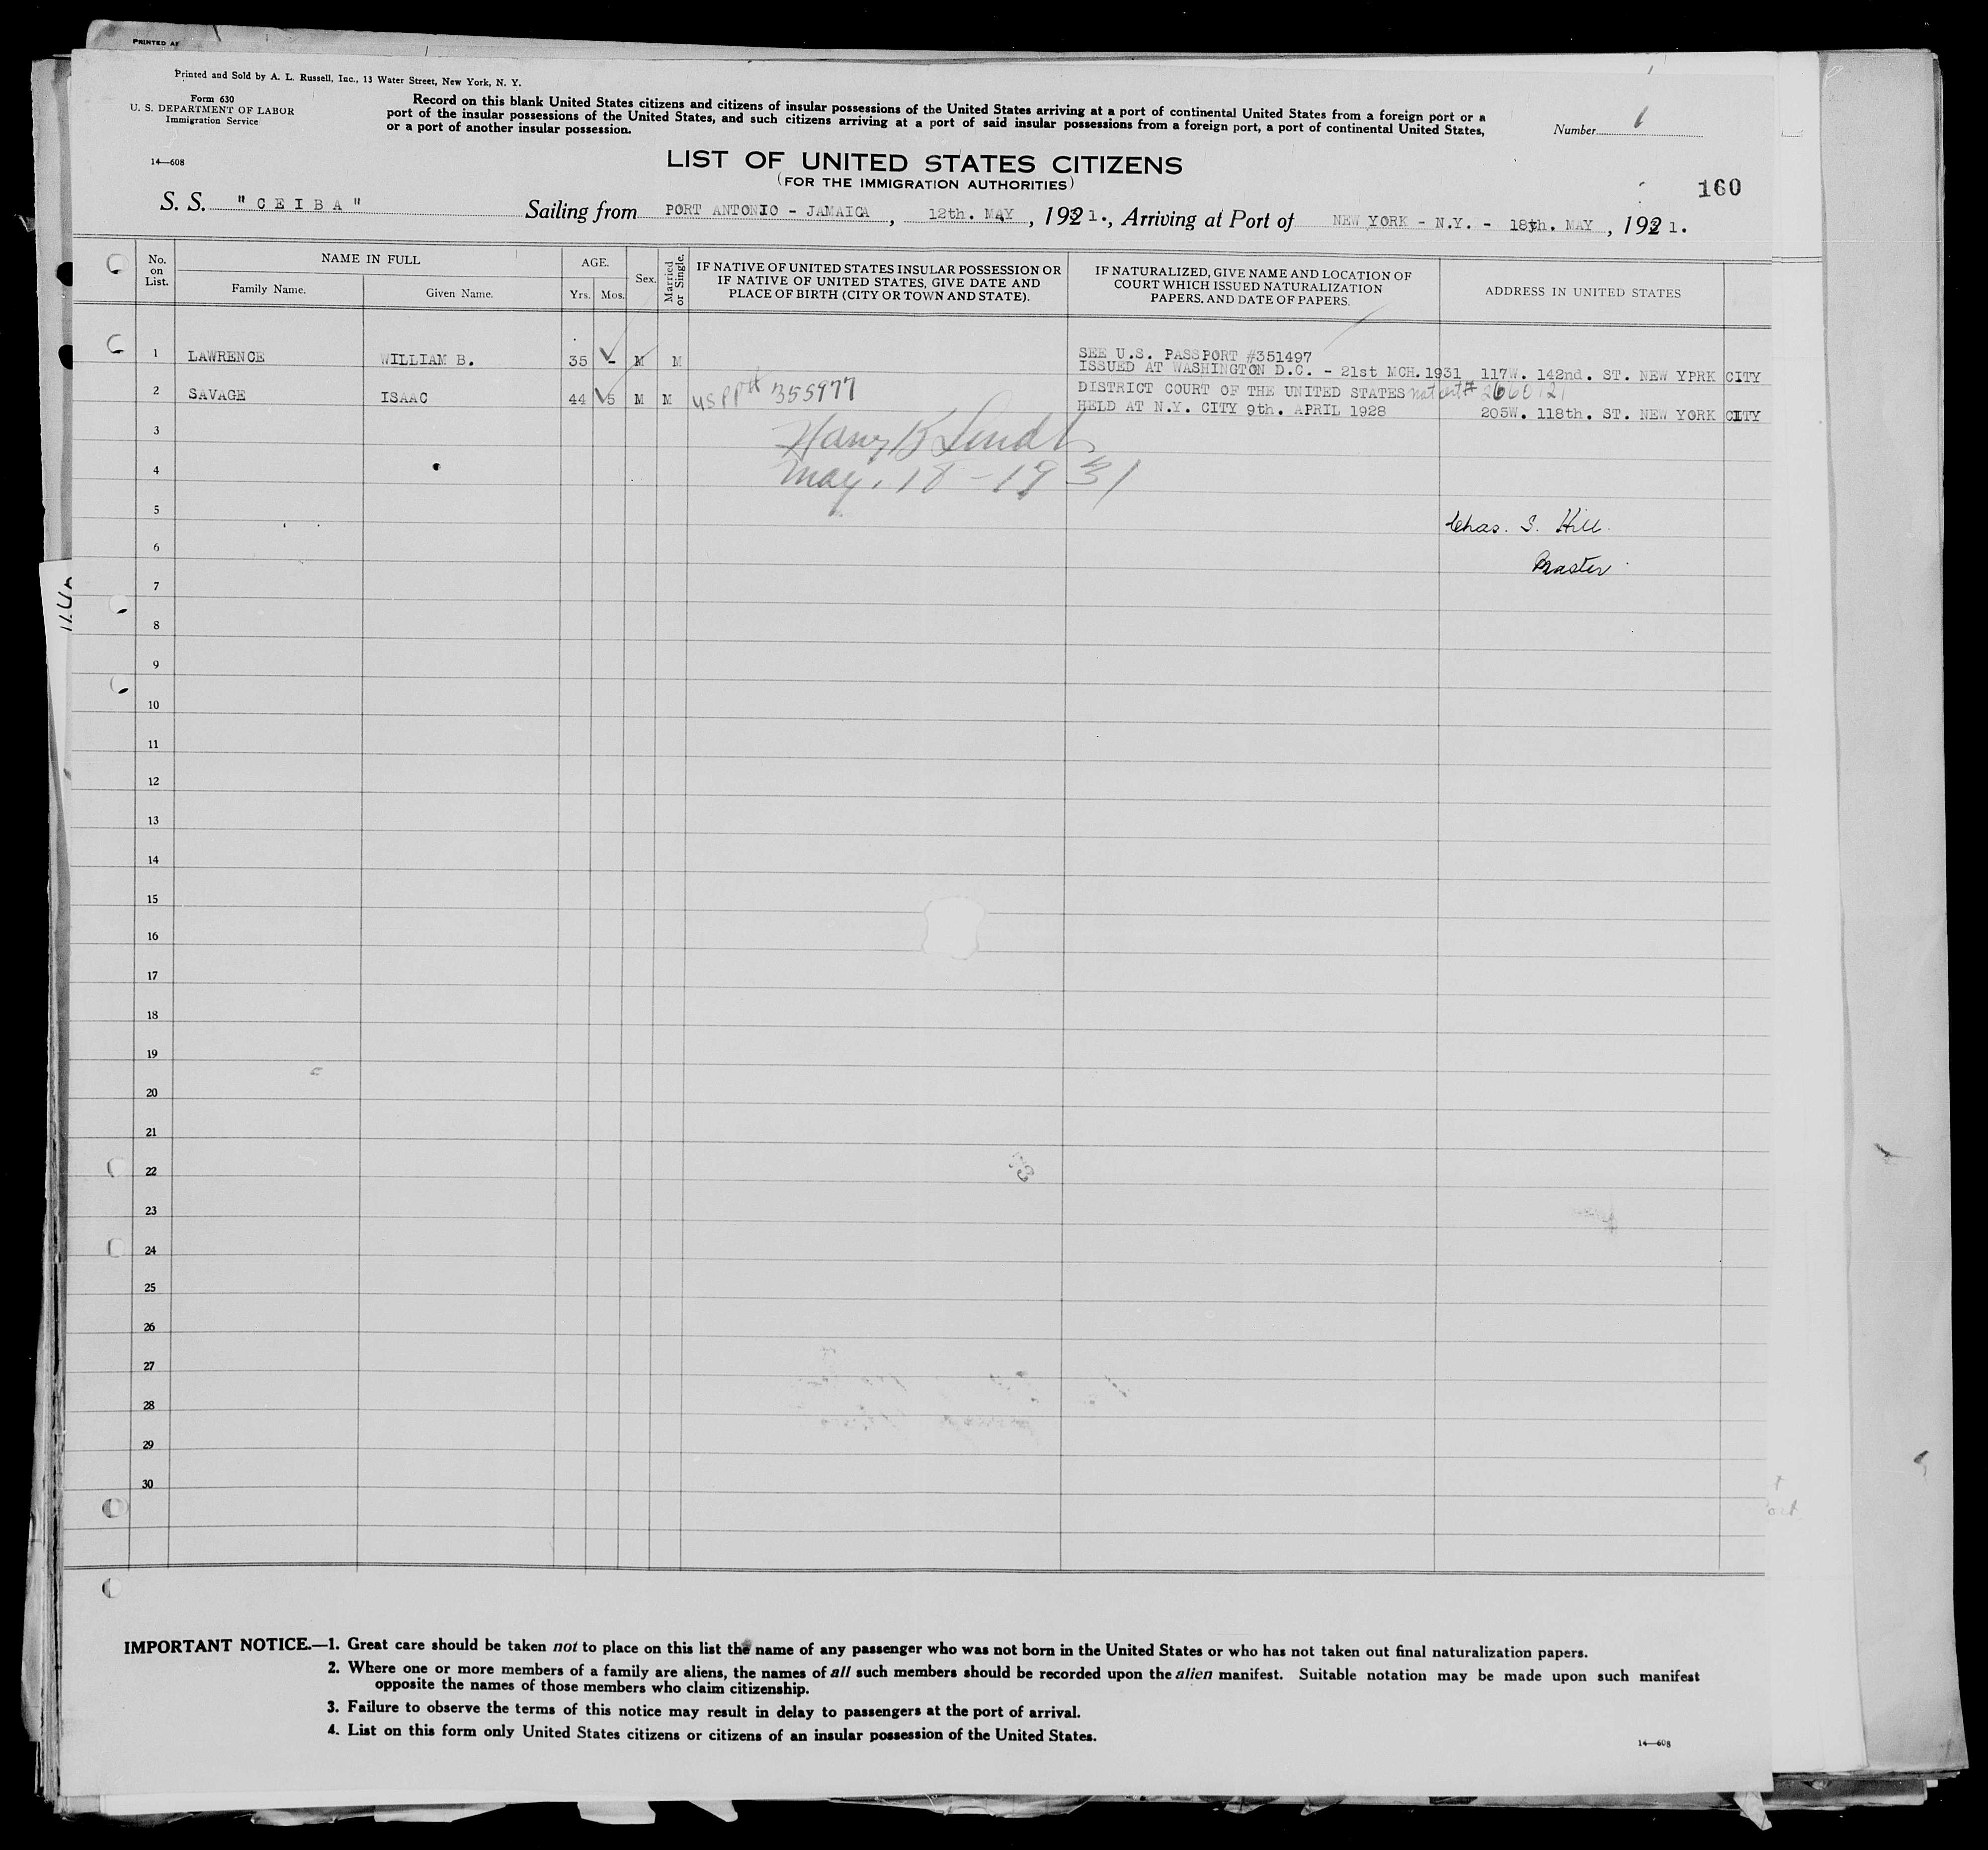 PRINTED AT
Printed and Sold by A. L. Russell, Inc., 13 Water Street, New York, N. Y.
Form 630
U. S. DEPARTMENT OF LABOR
Immigration Service
14—608
Record on this blank United States citizens and citizens of insular possessions of the United States arriving at a port of continental United States from a foreign port or a
port of the insular possessions of the United States, and such citizens arriving at a port of said insular possessions from a foreign port, a port of continental United States,
or a port of another insular possession.
Number 1
LIST OF UNITED STATES CITIZENS
(FOR THE IMMIGRATION AUTHORITIES)
160
S. S. "CEIBA" Sailing from PORT ANTONIO - JAMAICA, 12th. MAY, 1931., Arriving at Port of NEW YORK - N.Y. - 18th. MAY, 1931.
No. on List.
NAME IN FULL
Family Name.
Given Name.
AGE.
Yrs.
Mos.
Sex.
Married or Single.
IF NATIVE OF UNITED STATES INSULAR POSSESSION OR
IF NATIVE OF UNITED STATES, GIVE DATE AND
PLACE OF BIRTH (CITY OR TOWN AND STATE).
IF NATURALIZED, GIVE NAME AND LOCATION OF
COURT WHICH ISSUED NATURALIZATION
PAPERS, AND DATE OF PAPERS.
ADDRESS IN UNITED STATES
1 LAWRENCE WILLIAM B. 35 - M M SEE U.S. PASSPORT #351497
ISSUED AT WASHINGTON D.C. - 21st MCH. 1931 117W. 142nd. ST. NEW YPRK CITY
2 SAVAGE ISAAC 44 5 M M US PPt 355977 DISTRICT COURT OF THE UNITED STATES nat cert# 2660121
HELD AT N.Y. CITY 9th. APRIL 1928 205W. 118th. ST. NEW YORK CITY
3
May. 18-1931
4
5
Chas. S. Hill.
6
Master
7
8
9
10
11
12
13
14
15
16
17
18
19
20
21
22
23
24
25
26
27
28
29
30
IMPORTANT NOTICE.—1. Great care should be taken not to place on this list the name of any passenger who was not born in the United States or who has not taken out final naturalization papers.
2. Where one or more members of a family are aliens, the names of all such members should be recorded upon the alien manifest. Suitable notation may be made upon such manifest
opposite the names of those members who claim citizenship.
3. Failure to observe the terms of this notice may result in delay to passengers at the port of arrival.
4. List on this form only United States citizens or citizens of an insular possession of the United States.
14—608